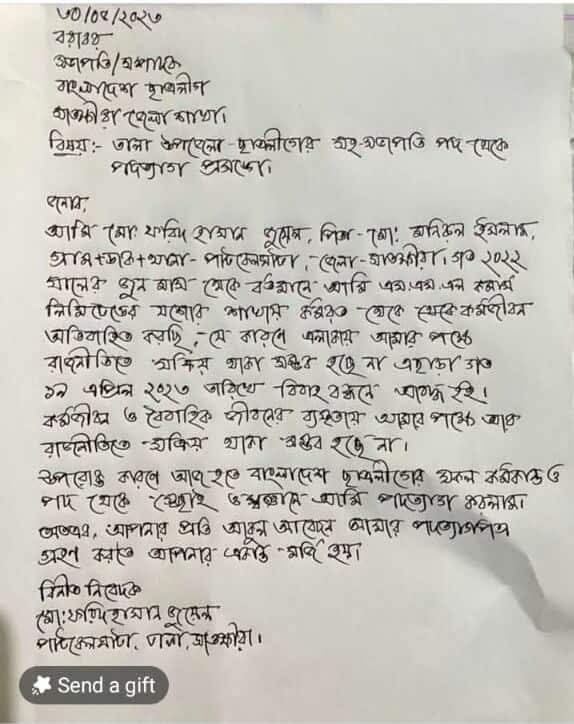 ৩০/০৪/২০২৩
বরাবর
সভাপতি/সম্পাদক
বাংলাদেশ ছাত্রলীগ
সাতক্ষীরা জেলা শাখা।
বিষয়:- তালা উপজেলা ছাত্রলীগের সহ-সভাপতি পদ থেকে
পদত্যাগ প্রসঙ্গে।
জনাব,
আমি মো: ফরিদ হাসান জুয়েল, পিতা-মো: মনিরুল ইসলাম,
গ্রাম+ডাক+থানা- পাটকেলঘাটা, জেলা-সাতক্ষীরা। গত ২০২২
সালের জুন মাস থেকে বর্তমানে আমি এস.এম.এল কমার্স
লিমিটেডের যশোর শাখায় কর্মরত থেকে কর্মজীবন
অতিবাহিত করছি, যে কারণে এলাকায় আমার পক্ষে
রাজনীতিতে সক্রিয় থাকা সম্ভব হচ্ছে না এছাড়া গত
১৭ এপ্রিল ২০২৩ তারিখে বিবাহ বন্ধনে আবদ্ধ হই।
কর্মজীবন ও বৈবাহিক জীবনের ব্যস্ততায় আমার পক্ষে আর
রাজনীতিতে সক্রিয় থাকা সম্ভব হচ্ছে না।
উপরোক্ত কারণে আজ হতে বাংলাদেশ ছাত্রলীগের সকল কর্মকান্ড ও
পদ থেকে স্বেচ্ছায় ও স্বজ্ঞানে আমি পদত্যাগ করলাম।
অতএব, আপনার প্রতি আকুল আবেদন আমার পদত্যাগপত্র
গ্রহণ করতে আপনার একান্ত মর্জি হয়।
বিনীত নিবেদক
মো: ফরিদ হাসান জুয়েল
পাটকেলঘাটা, তালা, সাতক্ষীরা।
Send a gift